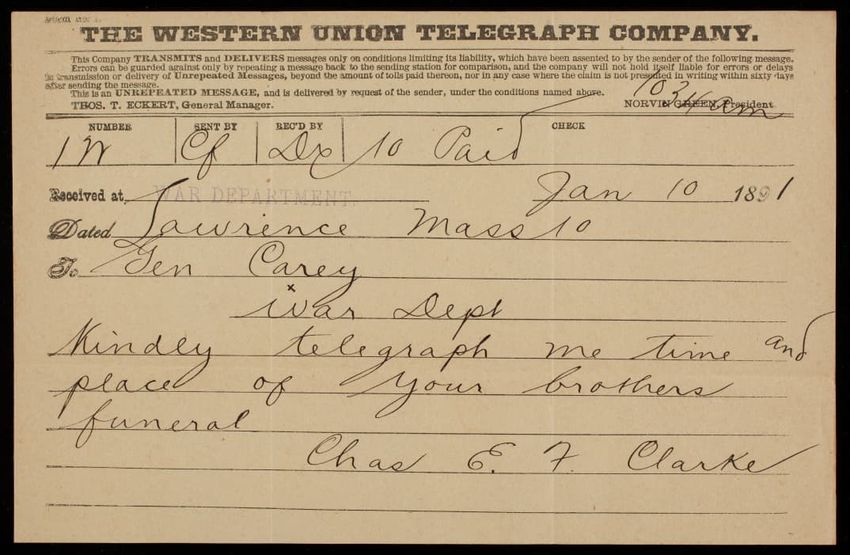 THE WESTERN UNION TELEGRAPH COMPANY.
This Company TRANSMITS and DELIVERS messages only on conditions limiting its liability, which have been assented to by the sender of the following message.
Errors can be guarded against only by repeating a message back to the sending station for comparison, and the company will not hold itself liable for errors or delays
in transmission or delivery of Unrepeated Messages, beyond the amount of tolls paid thereon, nor in any case where the claim is not presented in writing within sixty days
after sending the message.
This is an UNREPEATED MESSAGE, and is delivered by request of the sender, under the conditions named above.
THOS. T. ECKERT, General Manager. NORVIN GREEN, President.
1034 am
NUMBER SENT BY REC'D BY CHECK
1W Cf Dx 10 Paid
Received at WAR DEPARTMENT. Jan 10 1891
Dated Lawrence Mass 10
To Gen Carey
x
War Dept
Kindly telegraph me time and
place of your brothers
funeral
Chas E. F. Clarke